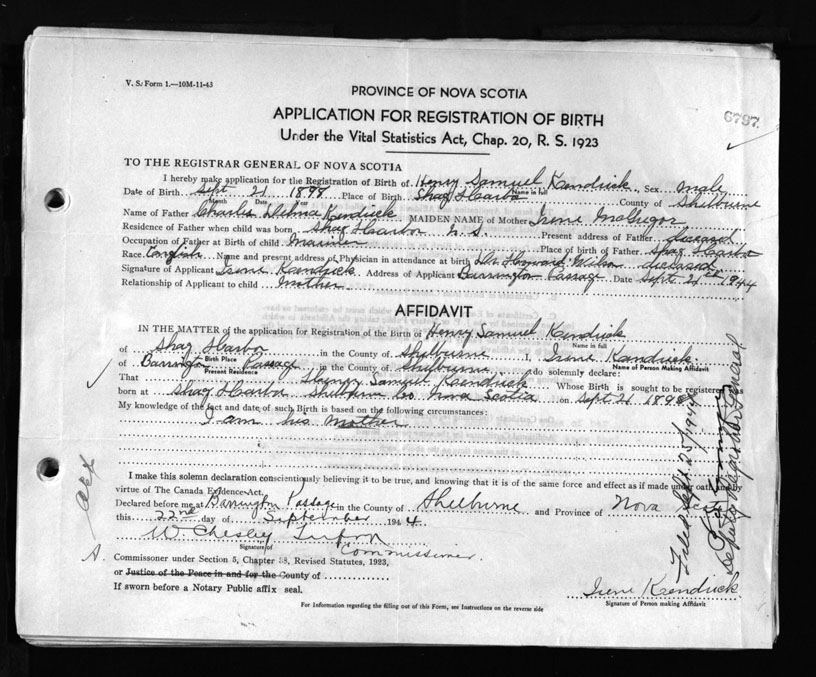 V. S. Form 1.—10M-11-43
PROVINCE OF NOVA SCOTIA
6797
APPLICATION FOR REGISTRATION OF BIRTH
Under the Vital Statistics Act, Chap. 20, R. S. 1923
TO THE REGISTRAR GENERAL OF NOVA SCOTIA
I hereby make application for the Registration of Birth of Henry Samuel Kendrick Sex male
Name in full
Date of Birth Sept 21 1898 Place of Birth Shag Harbor County of Shelburne
Month Date Year
Name of Father Charles Kendrick MAIDEN NAME of Mother Irene McGregor
Residence of Father when child was born Shag Harbor N.S. Present address of Father deceased
Occupation of Father at Birth of child Mariner Place of birth of Father Shag Harbor
Race English Name and present address of Physician in attendance at birth Dr Howard Wilson deceased
Signature of Applicant Irene Kendrick Address of Applicant Barrington Passage Date Sept. 1944
Relationship of Applicant to child Mother
AFFIDAVIT
IN THE MATTER of the application for Registration of the Birth of Henry Samuel Kendrick
Name in full
of Shag Harbor in the County of Shelburne I, Irene Kendrick
Birth Place Name of Person Making Affidavit
of Barrington Passage in the County of Shelburne do solemnly declare:
Present Residence
That Henry Samuel Kendrick Whose Birth is sought to be registered was
born at Shag Harbor Shelburne Co Nova Scotia on Sept 21 1898
My knowledge of the fact and date of such Birth is based on the following circumstances:
I am his mother
I make this solemn declaration conscientiously believing it to be true, and knowing that it is of the same force and effect as if made under oath and by
virtue of The Canada Evidence Act.
Declared before me at Barrington Passage in the County of Shelburne and Province of Nova Scotia
this 22nd day of September 1944
W. Chesley
Signature of Commissioner
A Commissioner under Section 5, Chapter 38, Revised Statutes, 1923,
or Justice of the Peace in and for the County of
If sworn before a Notary Public affix seal.
Irene Kendrick
Signature of Person making Affidavit
For Information regarding the filling out of this Form, see Instructions on the reverse side
Filed Sept. 25/1944
Deputy Registrar General